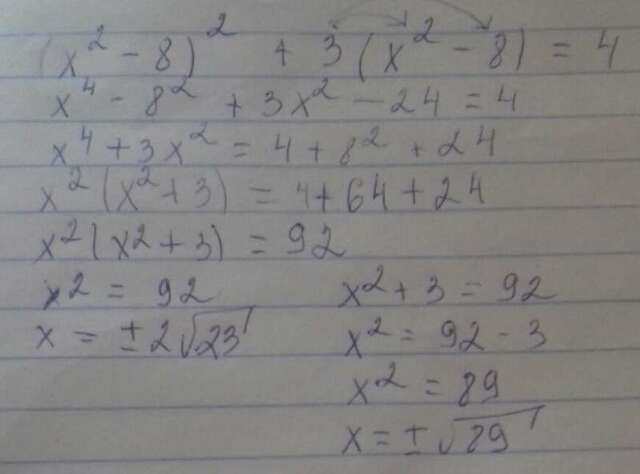 (x² - 8)² + 3(x² - 8) = 4
x⁴ - 8² + 3x² - 24 = 4
x⁴ + 3x² = 4 + 8² + 24
x²(x² + 3) = 4 + 64 + 24
x²(x² + 3) = 92
x² = 92 x² + 3 = 92
x = ±2√23 x² = 92 - 3
x² = 89
x = ±√89